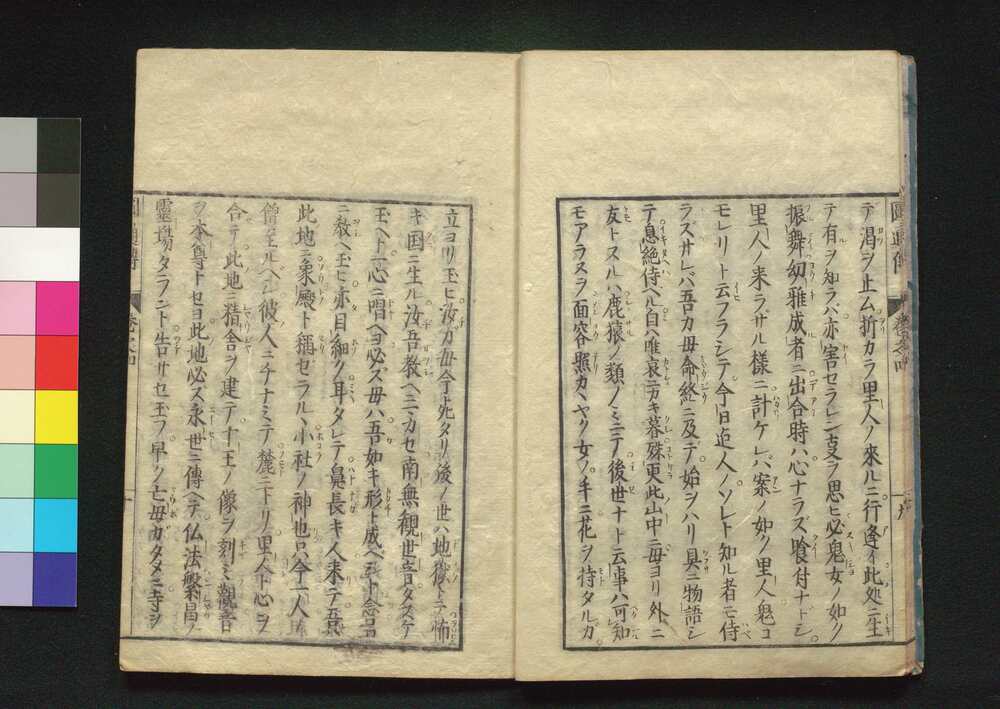 テ渇ヲ止ム折カラ里人ノ來ルニ行逢イ此処ニ生
テ有ヲ知ラハ亦害セラレン支ヲ思ヒ必鬼女ノ如ク
振舞幼雅成者ニ出合時ハ心ナラズ喰付ナトシ
里人ノ来ラザル様ニ計ケレバ案ノ如ク里人鬼コ
モレリト云フラシテ今日迄人ノソレト知ル者モ侍
ラズサレバ吾カ母命終ニ及デ始ヲハリ具ニ物語シ
テ息絶侍ヘル自ハ唯哀ニカキ暮殊更此山中ニ母ヨリ外ニ
友トスルハ鹿猿ノ類ノミニテ後世ナト云事ハ可知
モアラスヲ面容照カヽヤク女ノ手ニ花ヲ持タルカ
圓通傳
巻之四
立ヨリ玉ヒ汝カ母今死タリ後ノ世ハ地獄トテ怖
キ国ニ生ル汝吾教ヘニマカセ南無観世音タスケ
玉ヘト一心ニ唱ヘヨ必ズ母ハ吾如キ形ト成ヘシト念呂
ニ教ヘ玉ヒ亦目ノ細ク耳タレテ鼻長キ人来テ吾
此地ニ象殿ト稱ゼラルヽ小社ノ神也只今一人
僧至ルヘシ彼人ニチナミテ麓ニ下リ里人ト心ヲ
合テ此地ニ精舎ヲ建テ十王ノ像ヲ刻ミ觀音
ヲ本尊トセヨ此地必ス永世ニ傳ヘテ仏法繁昌ノ
靈場タラント告サセ玉フ早ク亡母カタメニ寺ヲ
圓通傳
巻之四